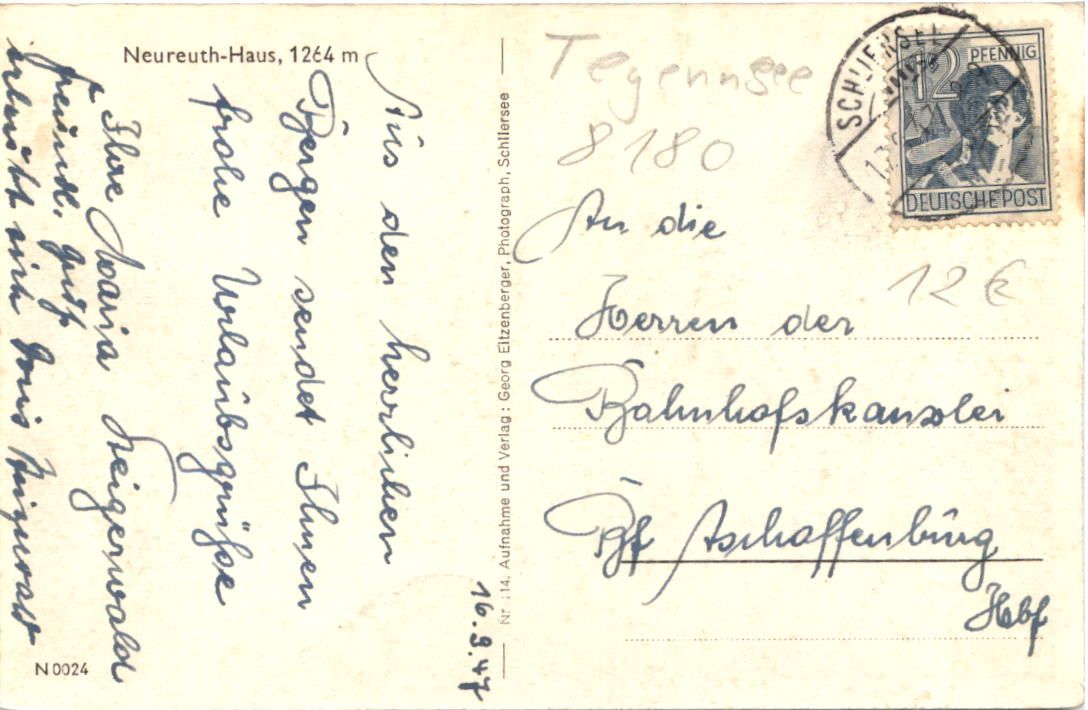 Neureuth-Haus, 1264 m
16.9.47
Aus den herrlichen
Bergen sendet Ihnen
frohe Urlaubsgrüße
Ihre Maria Steigerwald
freundl. Gruß
erlaubt sich Steigerwald
N 0024
Nr. 114. Aufnahme und Verlag: Georg Eitzenberger, Photograph, Schliersee
Tegernnsee
8180
SCHLIERSEE
12 PFENNIG
DEUTSCHE POST
12 €
An die
Herren der
Bahnhofskanzlei
Bf Aschaffenburg
Hbf